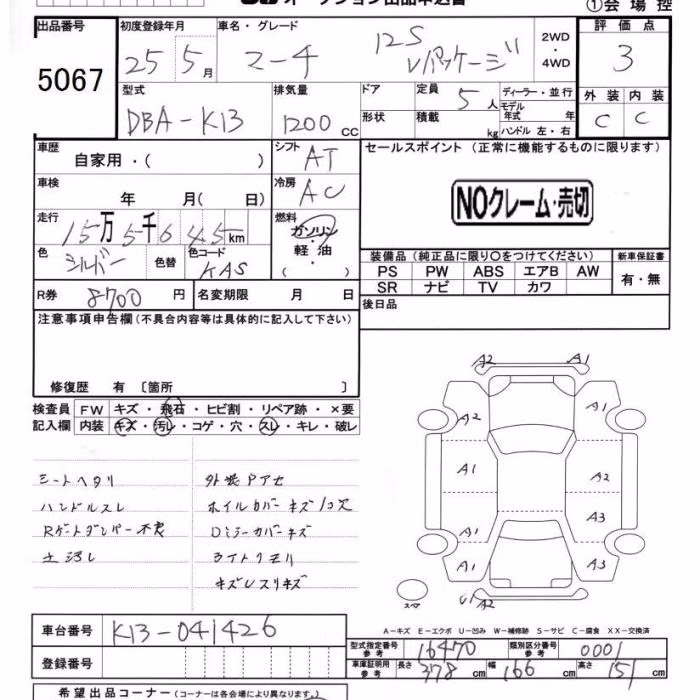 オークション出品申込書
①会場控
出品番号
5067
初度登録年月
25 5月
車名・グレード
マーチ 12S Vパッケージ
2WD・4WD
評価点
3
外装 内装
C C
型式
DBA-K13
排気量
1200 CC
ドア
形状
定員
5人
積載 kg
ディーラー・並行
モデル年式 年
ハンドル 左・右
車歴
自家用・( )
シフト
AT
セールスポイント (正常に機能するものに限ります)
NOクレーム・売切
車検
年 月( 日)
冷房
AC
走行
15万5千645km
燃料
ガソリン・軽油・( )
色
シルバー
色替
色コード
KAS
装備品(純正品に限り○をつけてください)
新車保証書
PS PW ABS エアB AW
SR ナビ TV カワ
有・無
R券 8700円
名変期限 月 日
後日品
注意事項申告欄(不具合内容等は具体的に記入して下さい)
修復歴 有 〔箇所 〕
検査員記入欄
FW キズ・飛石・ヒビ割・リペア跡・×要
内装 キズ・汚レ・コゲ・穴・スレ・キレ・破レ
シートヘタリ
ハンドルスレ
Rゲートダンパー不良
土汚レ
外装Pアセ
ホイルカバーキズ1コ欠
Dミラーカバーキズ
ライトクモリ
キズレスリキズ
A2 A1
A2 A1
A1 A2
A3
A1
A1 A3
A2
スペア
A-キズ E-エクボ U-凹み W-補修跡 S-サビ C-腐食 XX-交換済
車台番号
K13-041426
登録番号
型式指定番号 参考
16470
類別区分番号 参考
0001
車庫証明用 参考
長さ 378cm 幅 166cm 高さ 151cm
希望出品コーナー(コーナーは各会場により異なります)